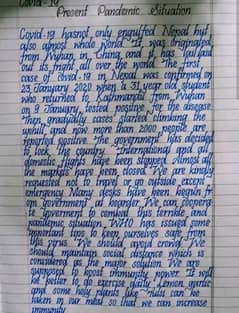 Covid-19
Present Pandemic situation
Covid-19 hasnot only engulfed Nepal but
also almost whole world. It was originated
from Wuhan, in China and it has laid
out its fright all over the world. The first
case of covid-19 in Nepal was confirmed on
23 January 2020 when a 31 year old student
who returned to Kathmandu from Wuhan
on 9 January, tested positive for the disease
Then gradually cases started climbing the
uphill and now more than 2000 people are
reported positive. The government has decided
to lock the country. International and all
domestic flights have been stopped. Almost all
the markets have been closed. We are kindly
requested not to travel or go outside except
emergency. Many desks have been kept
from government at boarder. We can
to goverment to combat this terrible and
pandemic situation. WHO has issued some
important tips to keep ourselves safe from
this virus. We should avoid crowd. We
should maintain social distance which is
considered as the major solution. We are
supposed to boost immunity power. It will
be better to do exercise daily. Lemon, garlic
and some holy plants like Tulsi can be
taken in our meal so that we can increase
immunity